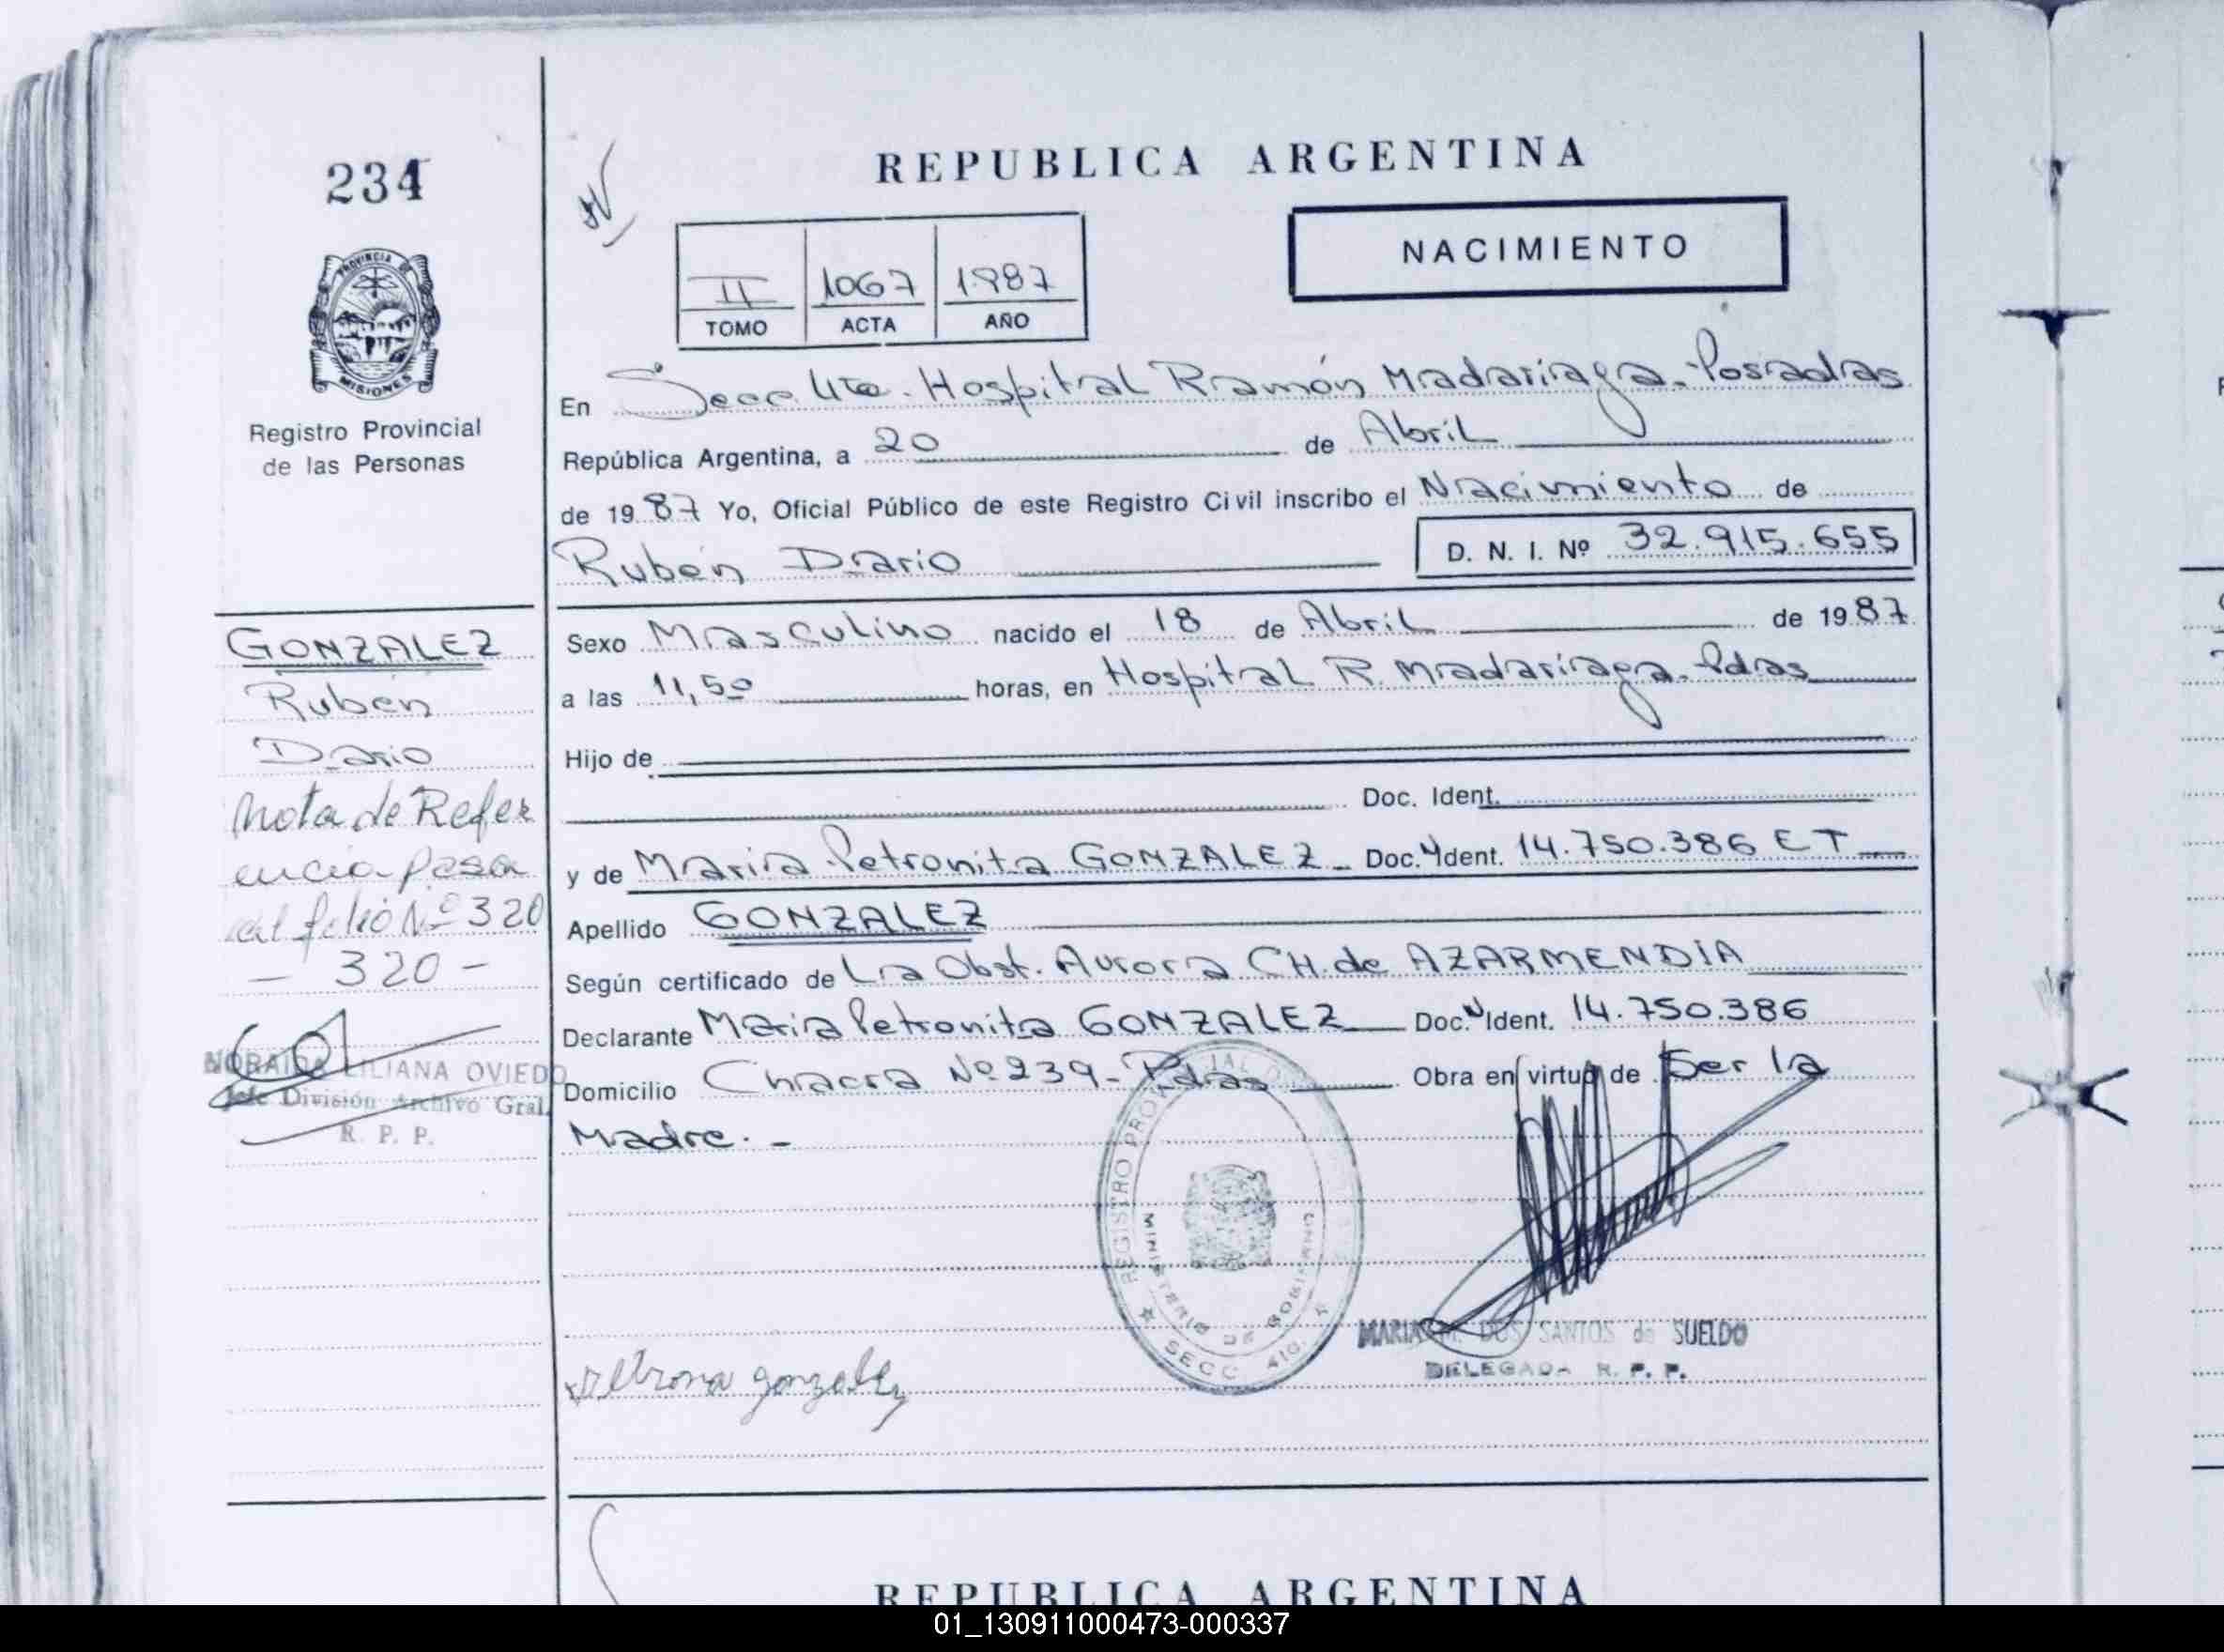 234
PROVINCIA DE
MISIONES
Registro Provincial
de las Personas
GONZALEZ
Rubén
Dario
Nota de Refer
encia pasa
al folio Nº 320
- 320 -
NORAIDA LILIANA OVIEDO
Jefe División Archivo Gral.
R. P. P.
REPUBLICA ARGENTINA
NACIMIENTO
II 1067 1987
TOMO ACTA AÑO
En Secc 4ta. Hospital Ramón Madariaga. Posadas
República Argentina, a 20 de Abril
de 1987 Yo, Oficial Público de este Registro Civil inscribo el Nacimiento de
Rubén Dario D. N. I. Nº 32.915.655
Sexo Masculino nacido el 18 de Abril de 1987
a las 11,50 horas, en Hospital R. Madariaga. Pdas
Hijo de
Doc. Ident.
y de Maria Petronita GONZALEZ - Doc. Ident. 14.750.386 CT
Apellido GONZALEZ
Según certificado de La Obst. Aurora CH. de AZARMENDIA
Declarante Maria Petronita GONZALEZ Doc. Ident. 14.750.386
Domicilio Chacra Nº 239 - Pdas Obra en virtud de Ser la
Madre. -
REGISTRO PROVINCIAL DE
MINISTERIO DE GOBIERNO
SECC 4ta.
MARIA DOS SANTOS de SUELDO
DELEGADA R. P. P.
Petrona gonzalez
REPUBLICA ARGENTINA
01_130911000473-000337